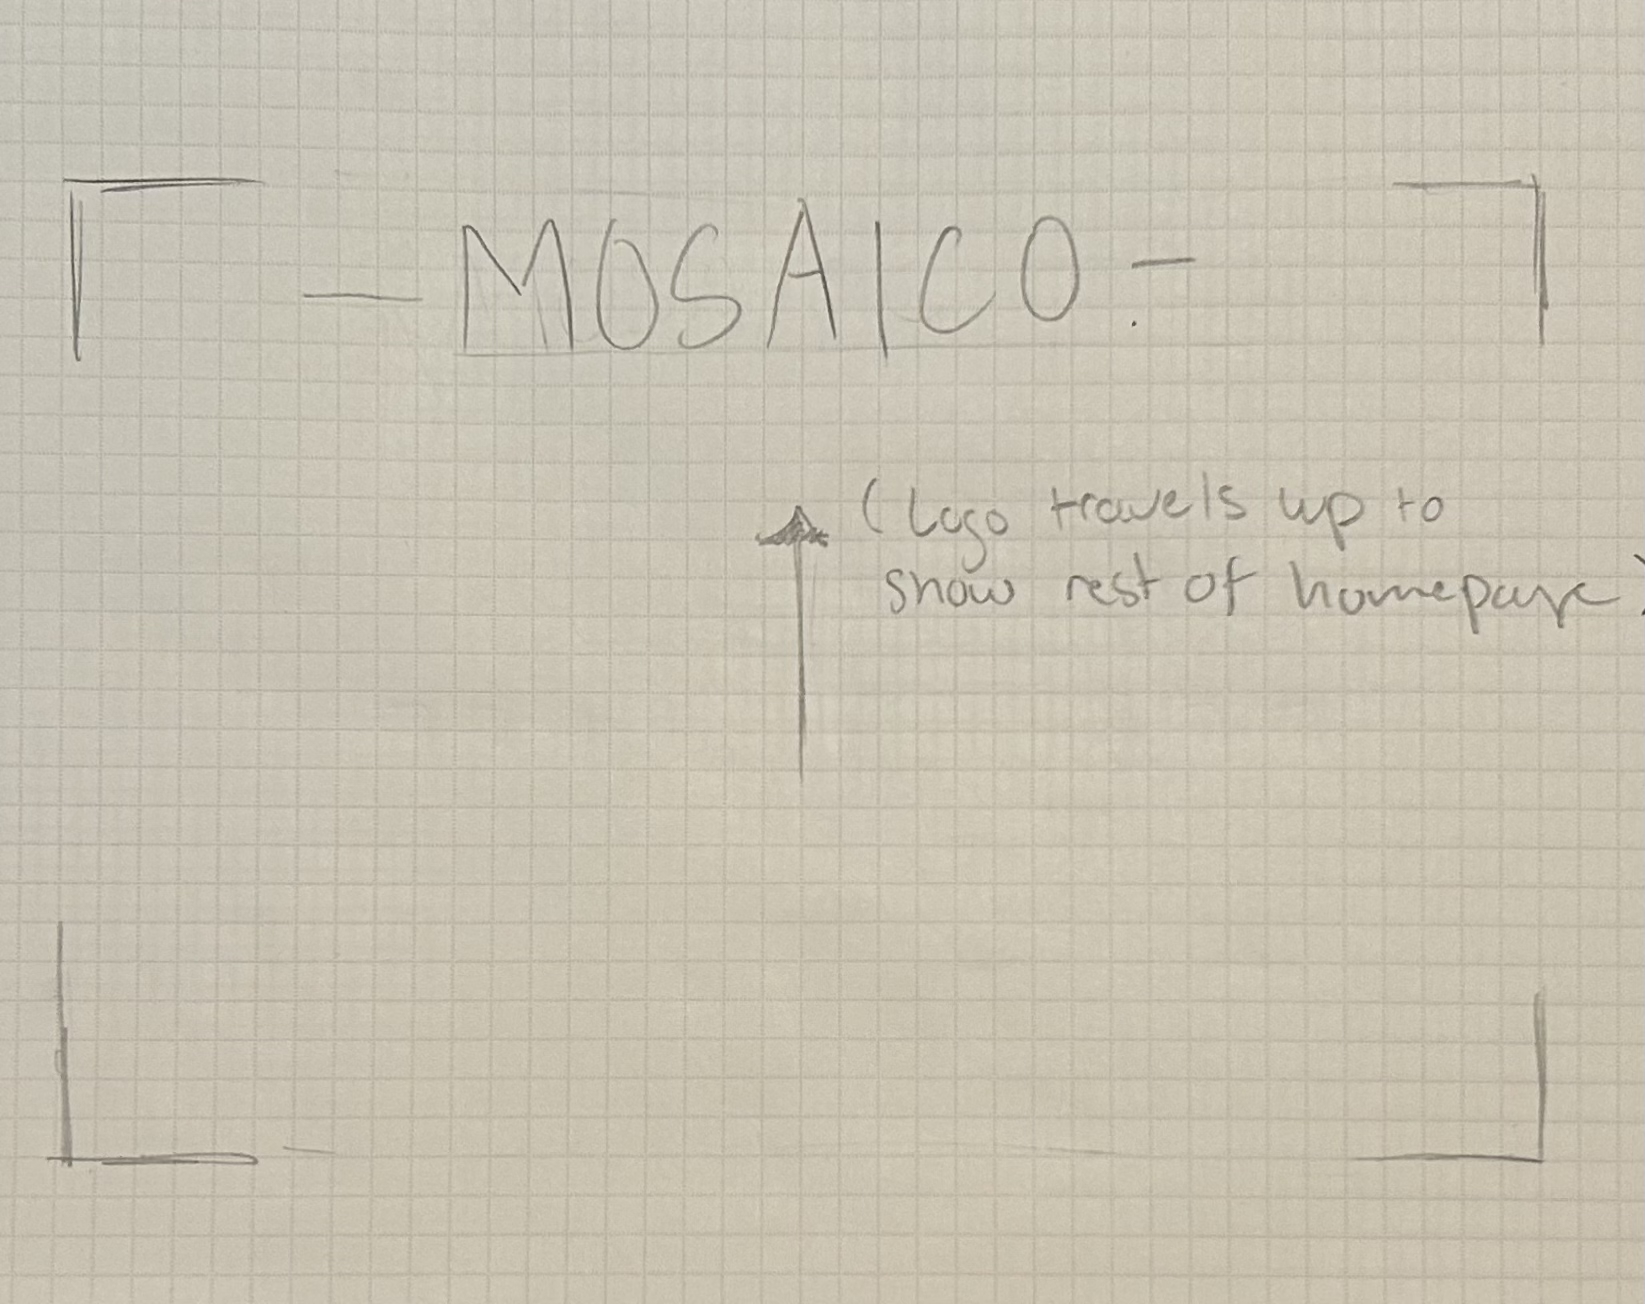 — MOSAICO. —
(Logo travels up to
show rest of homepage)